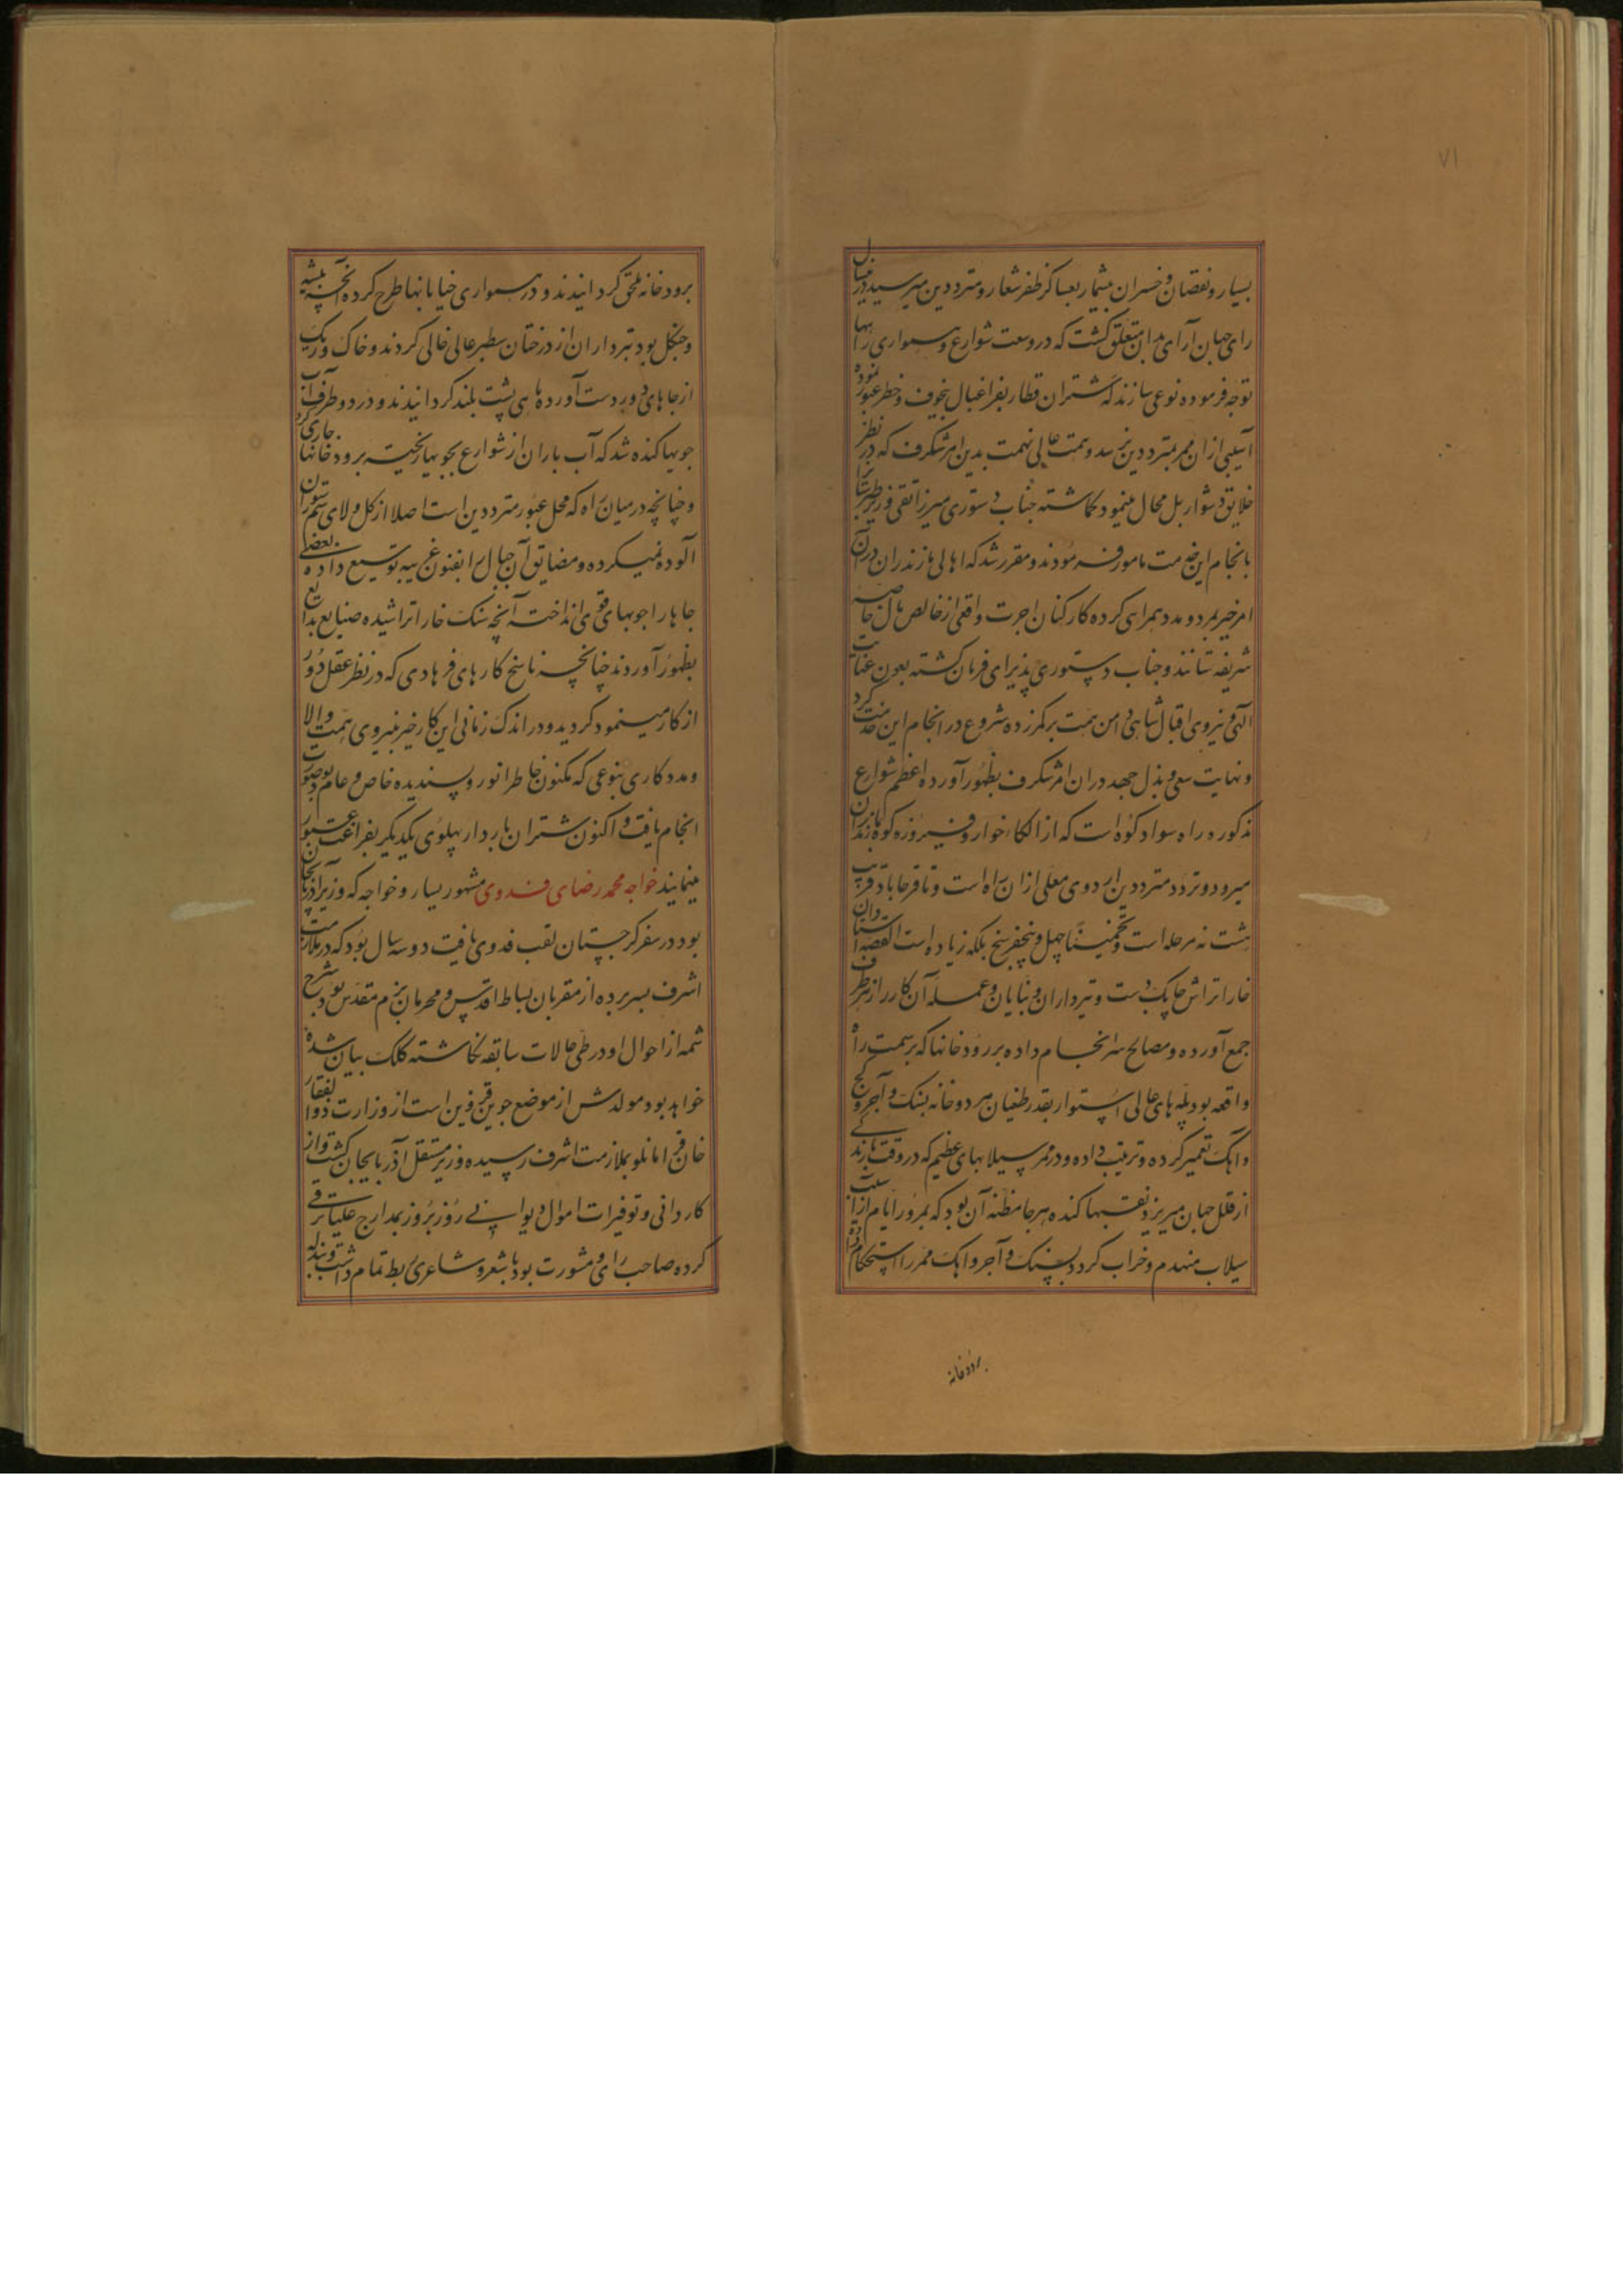 ۷۱
بسیار و نقصان و خسران بیشمار بعساکر ظفر شعار و مترددین میرسید درینسال
رای جهان آرای بدان متعلق کشت که در وسعت شوارع و همواری راهها
توجه فرموده نوعی سازند که شتران قطار بفراغبال بیخوف و خطر عبور نموده
آسیبی از ان ممر بمترددین نرسد و همت عالی نهمت بدین امر شکرف که در نظر
خلایق دشوار بل محال مینمود کماشته جناب دستوری میرزا تقی وزیر طبرستانرا
بانجام این خدمت مامور فرمودند و مقرر شد که اهالی مازندران در آن
امر خیر بمرد و مدد همراهی کرده کارکنان اجرت واقعی از خالص مال خاصه
شریفه ستانند و جناب دستوری پذیرای فرمان کشته بعون عنایت
الهی و نیروی اقبال شاهی دامن همت بر کمر زده شروع در انجام این خدمت کرد
و نهایت سعی و بذل جهد در ان امر شکرف بظهور آورده اعظم شوارع
مذکوره راه سواد کوه است که از الکاء خوار و فیروزه کوه بمازندران
میرود و تردد مترددین اردوی معلی از ان راه است و تا فرحاباد قریب
هشت نه مرحله است و تخمینا چهل و پنجفرسخ بلکه زیاده است القصه استادان
خاراتراش چابک دست و تبرداران و بنایان و عمله آن کار را از هر طرف
جمع آورده و مصالح سرانجام داده بر رودخانها که بر سمت راه
واقعه بود پله های عالی استوار بقدر طغیان هر دو خانه بسنک و آجر و کج
و اهک تعمیر کرده و ترتیب داده و در ممر سیلابهای عظیم که در وقت بارندکی
از قلل جبان میریزد نقبها کنده هر جا مظنه آن بود که بمرور ایام از اسیب
سیلاب منهدم و خراب کردد بسنک و آجر و اهک ممر را استحکام داده
برودخانه
برودخانه ملحق کردانیدند و در همواری خیابانها طرح کرده آنچه بیشه
و جنکل بود تبرداران از درختان سطبر عالی خالی کردند و خاک و ریک
از جاهای دور دست آورده ماهی پشت بلند کردانیدند و در دو طرف آب
جویها کنده شد که آب باران از شوارع بجویها ریخته برودخانها جاری کردد
و چنانچه در میان راه که محل عبور مترددین است اصلا از کل و لای سم ستوران
آلوده نمیکرده و مضایق آن جبال را بفنون غریبه توسیع داده بعضی
جاها را جوبهای قوی انداخته آنچه سنک خارا تراشیده صنایع بدایع
بظهور آوردند چنانچه ناسخ کارهای فرهادی که در نظر عقل دور
از کار مینمود کردید و در اندک زمانی این کار خیر بنیروی همت والا
و مددکاری بنوعی که مکنون خاطر انور و پسندیده خاص و عام بود صورت
انجام یافت و اکنون شتران باردار پهلوی یکدیکر بفراغت عبور
مینمایند خواجه محمد رضای فدوی مشهور بسارو خواجه که وزیر اذربایجان
بود در سفر کرجستان لقب فدوی یافت دو سه سال بود که در ملازمت
اشرف بسر برده از مقربان بساط اقدس و محرمان بزم مقدس بود شرح
شمه از احوال او در طی حالات سابقه نکاشته کلک بیان شده
خواهد بود مولدش از موضع جوین قزوین است از وزارت ذوالفقار
خان قرامانلو بملازمت اشرف رسیده وزیر مستقل آذربایجان کشت و از
کاردانی و توفیرات اموال دیوانی روز بروز بمدارج علیا ترقی
کرده صاحب رای و مشورت بود با شعر و شاعری ربط تمام داشت و بنده